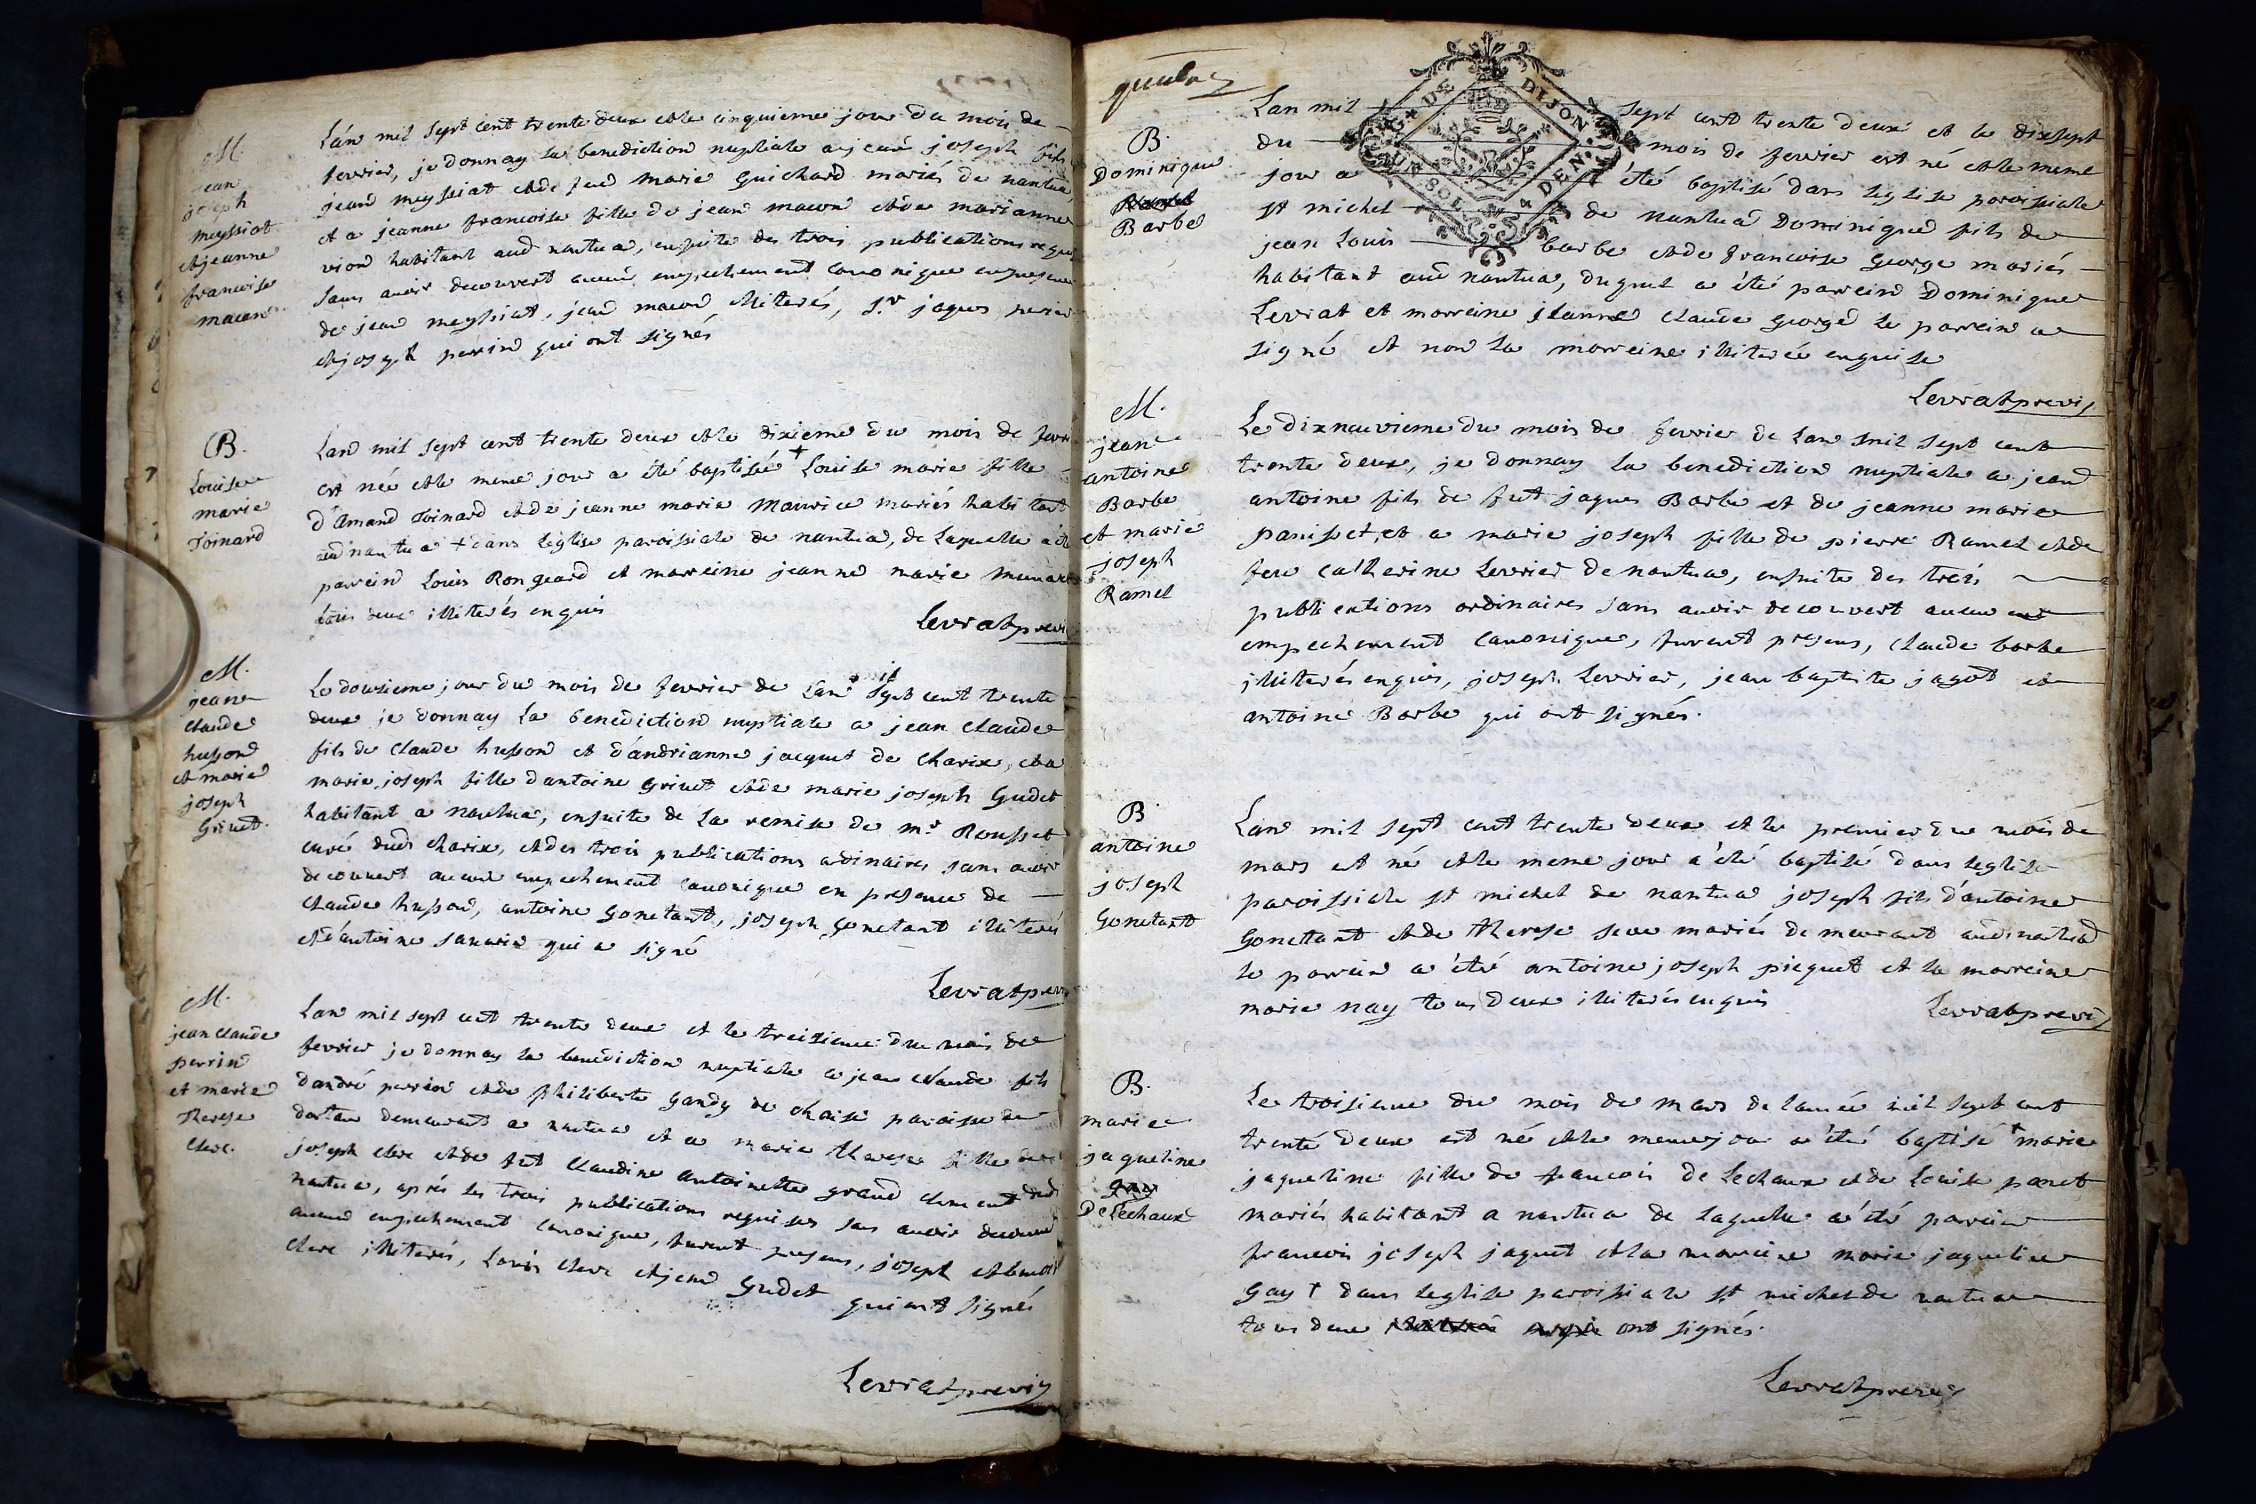 M.
jean
joseph
meyssiat
et jeanne
francoise
macon
L'an mil sept cent trente deux et le cinquieme jour du mois de
fevrier, je donnay la benediction nuptiale a jean joseph fils
jean meyssiat et de feue marie Guichard mariés de nantua,
et a jeanne francoise fille de jean macon et de marianne
vion habitant aud nantua, ensuite des trois publications requi
sans avoir decouvert aucun empechement canonique en presence
de jean meyssiat, jean macon illiterés, sr. jaques perrin
et joseph perrin qui ont signés
B.
Louise
marie
Toinard
Lan mil sept cent trente deux et le dixieme du mois de fevri
est née et le meme jour a été baptisée + Louise marie fille
d'Amand Toinard et de jeanne marie Maurice mariés habitant
aud nantua + dans leglise paroissiale de nantua, de laquelle a été
parrein Louis Rongeard et marreine jeanne marie
tous deux illiterés enquis
Levrat previ
M.
jean
claude
husson
et marie
joseph
Grivet.
Le dousieme jour du mois de fevrier de Lan mil sept cent trente
deux je donnay La benediction nuptiale a jean claude
fils de claude husson et d'andrianne jacquet de charix, et a
marie joseph fille dantoine Grivet et de marie joseph Gudet
habitant a nantua, ensuite de La remise de mr Rousset
curé dud charix, et des trois publications ordinaires sans avoir
decouvert aucun empechement canonique en presence de
claude husson, antoine Gonetant, joseph gonetant illiterés
et d'antoine savarin qui a signé
Levrat previ
M.
jean claude
perrin
et marie
Therese
clerc.
Lan mil sept cent trente deux et le treisieme du mois de
fevrier je donnay la benediction nuptiale a jean claude fils
dandré perrin et de philiberte Gandy de choise paroisse de
dortan demeurant a nantua et a marie therese fille de
joseph clerc et de fut claudine antoinette grand clement dud
nantua, après les trois publications requises sans avoir decouvert
aucun empechement canonique, furent presens, joseph et
clerc illiterés, Louis clerc et jean Gudet qui ont signés
Levrat previ
B.
Dominique
Barbe
Lan mil sept cent trente deux et le dixsept
du mois de fevrier est né et le meme
jour a été baptisé dans leglise paroissiale
st michel de nantua Dominique fils de
jean Louis barbe et de francoise George mariés
habitant aud nantua, duquel a été parrein Dominique
Levrat et marreine jeanne claude George le parrein a
signé et non la marreine illiterée enquise
Levrat previ
G. DE DIJON
UN SOL 4 DEN.
M.
jean
antoine
Barbe
et marie
joseph
Ramel
Le dixneuvieme du mois de fevrier de Lan mil sept cent
trente deux, je donnay la benediction nuptiale a jean
antoine fils de fut jaques Barbe et de jeanne marie
panisset, et a marie joseph fille de pierre Ramel et de
feue catherine Levrier de nantua, ensuite des trois
publications ordinaires sans avoir decouvert aucun
empechement canonique, furent presens, claude barbe
illiterés enquis, joseph Levrier, jean baptiste jagot et
antoine Barbe qui ont signés.
B
antoine
joseph
Gonetant
Lan mil sept cent trente deux et le premier du mois de
mars et né et le meme jour a été baptisé dans leglise
paroissiale st michel de nantua joseph fils d'antoine
Gonetant et de therese seve mariés demeurant aud nantua
le parrein a été antoine joseph piequet et la marreine
marie nay tous deux illiterés enquis
Levrat previ
B.
marie
jaqueline
De Lechaux
Le troisieme du mois de mars de lannée mil sept cent
trente deux est né et le meme jour a été baptisé + marie
jaqueline fille de francois de Lechaux et de Louise poncet
mariés habitant a nantua de laquelle a été parrein
francois joseph jaquet et la marreine marie jaqueline
Gay + dans leglise paroissiale st michel de nantua
tous deux ont signés.
Levrat previ